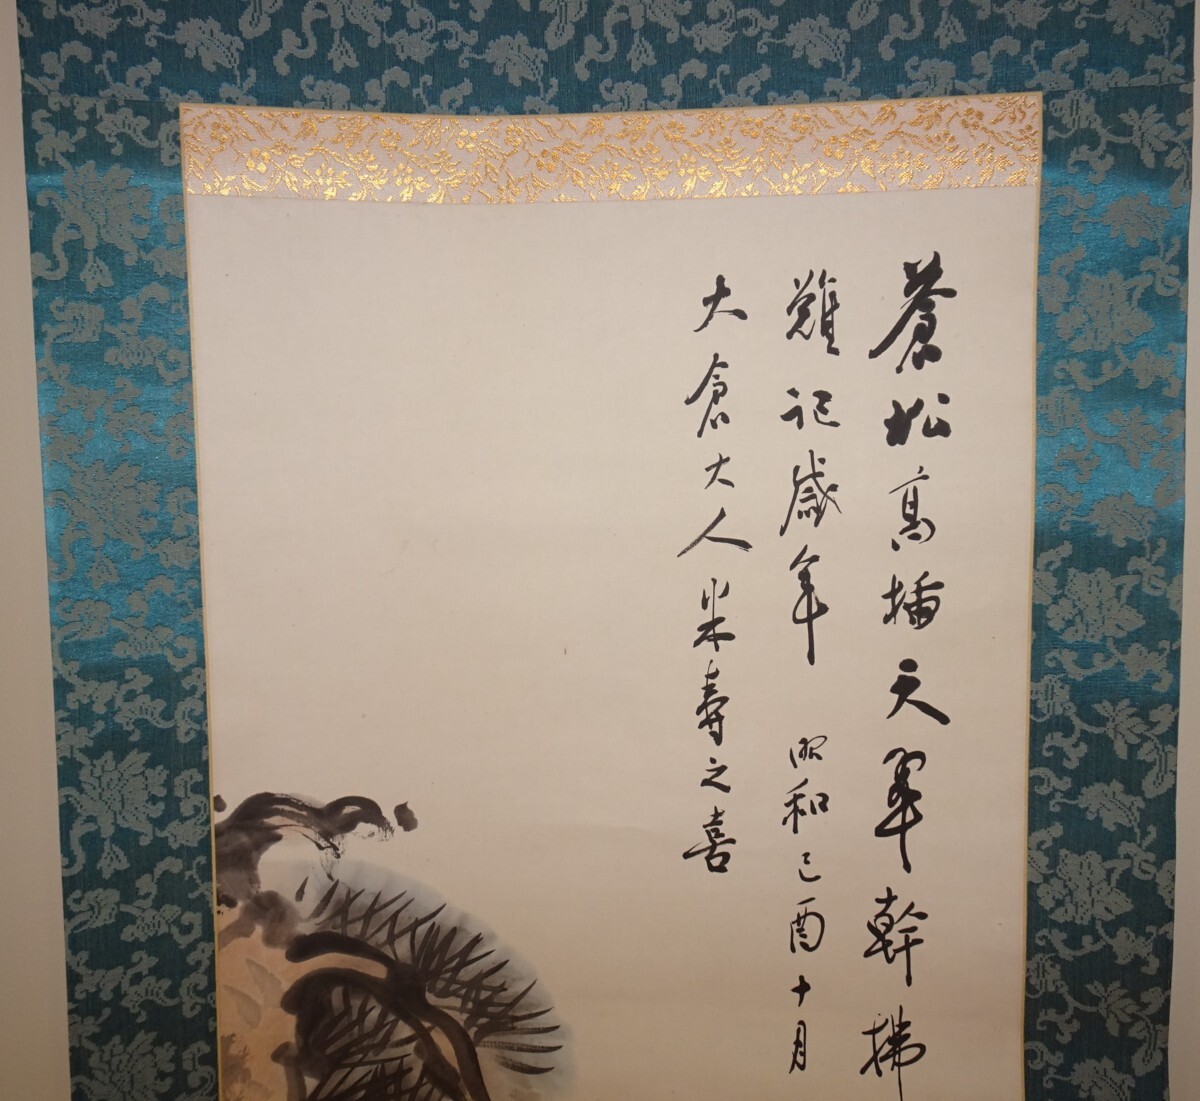 蒼松高插天翠幹拂
難記歳年 昭和己酉十月
大倉大人米壽之喜